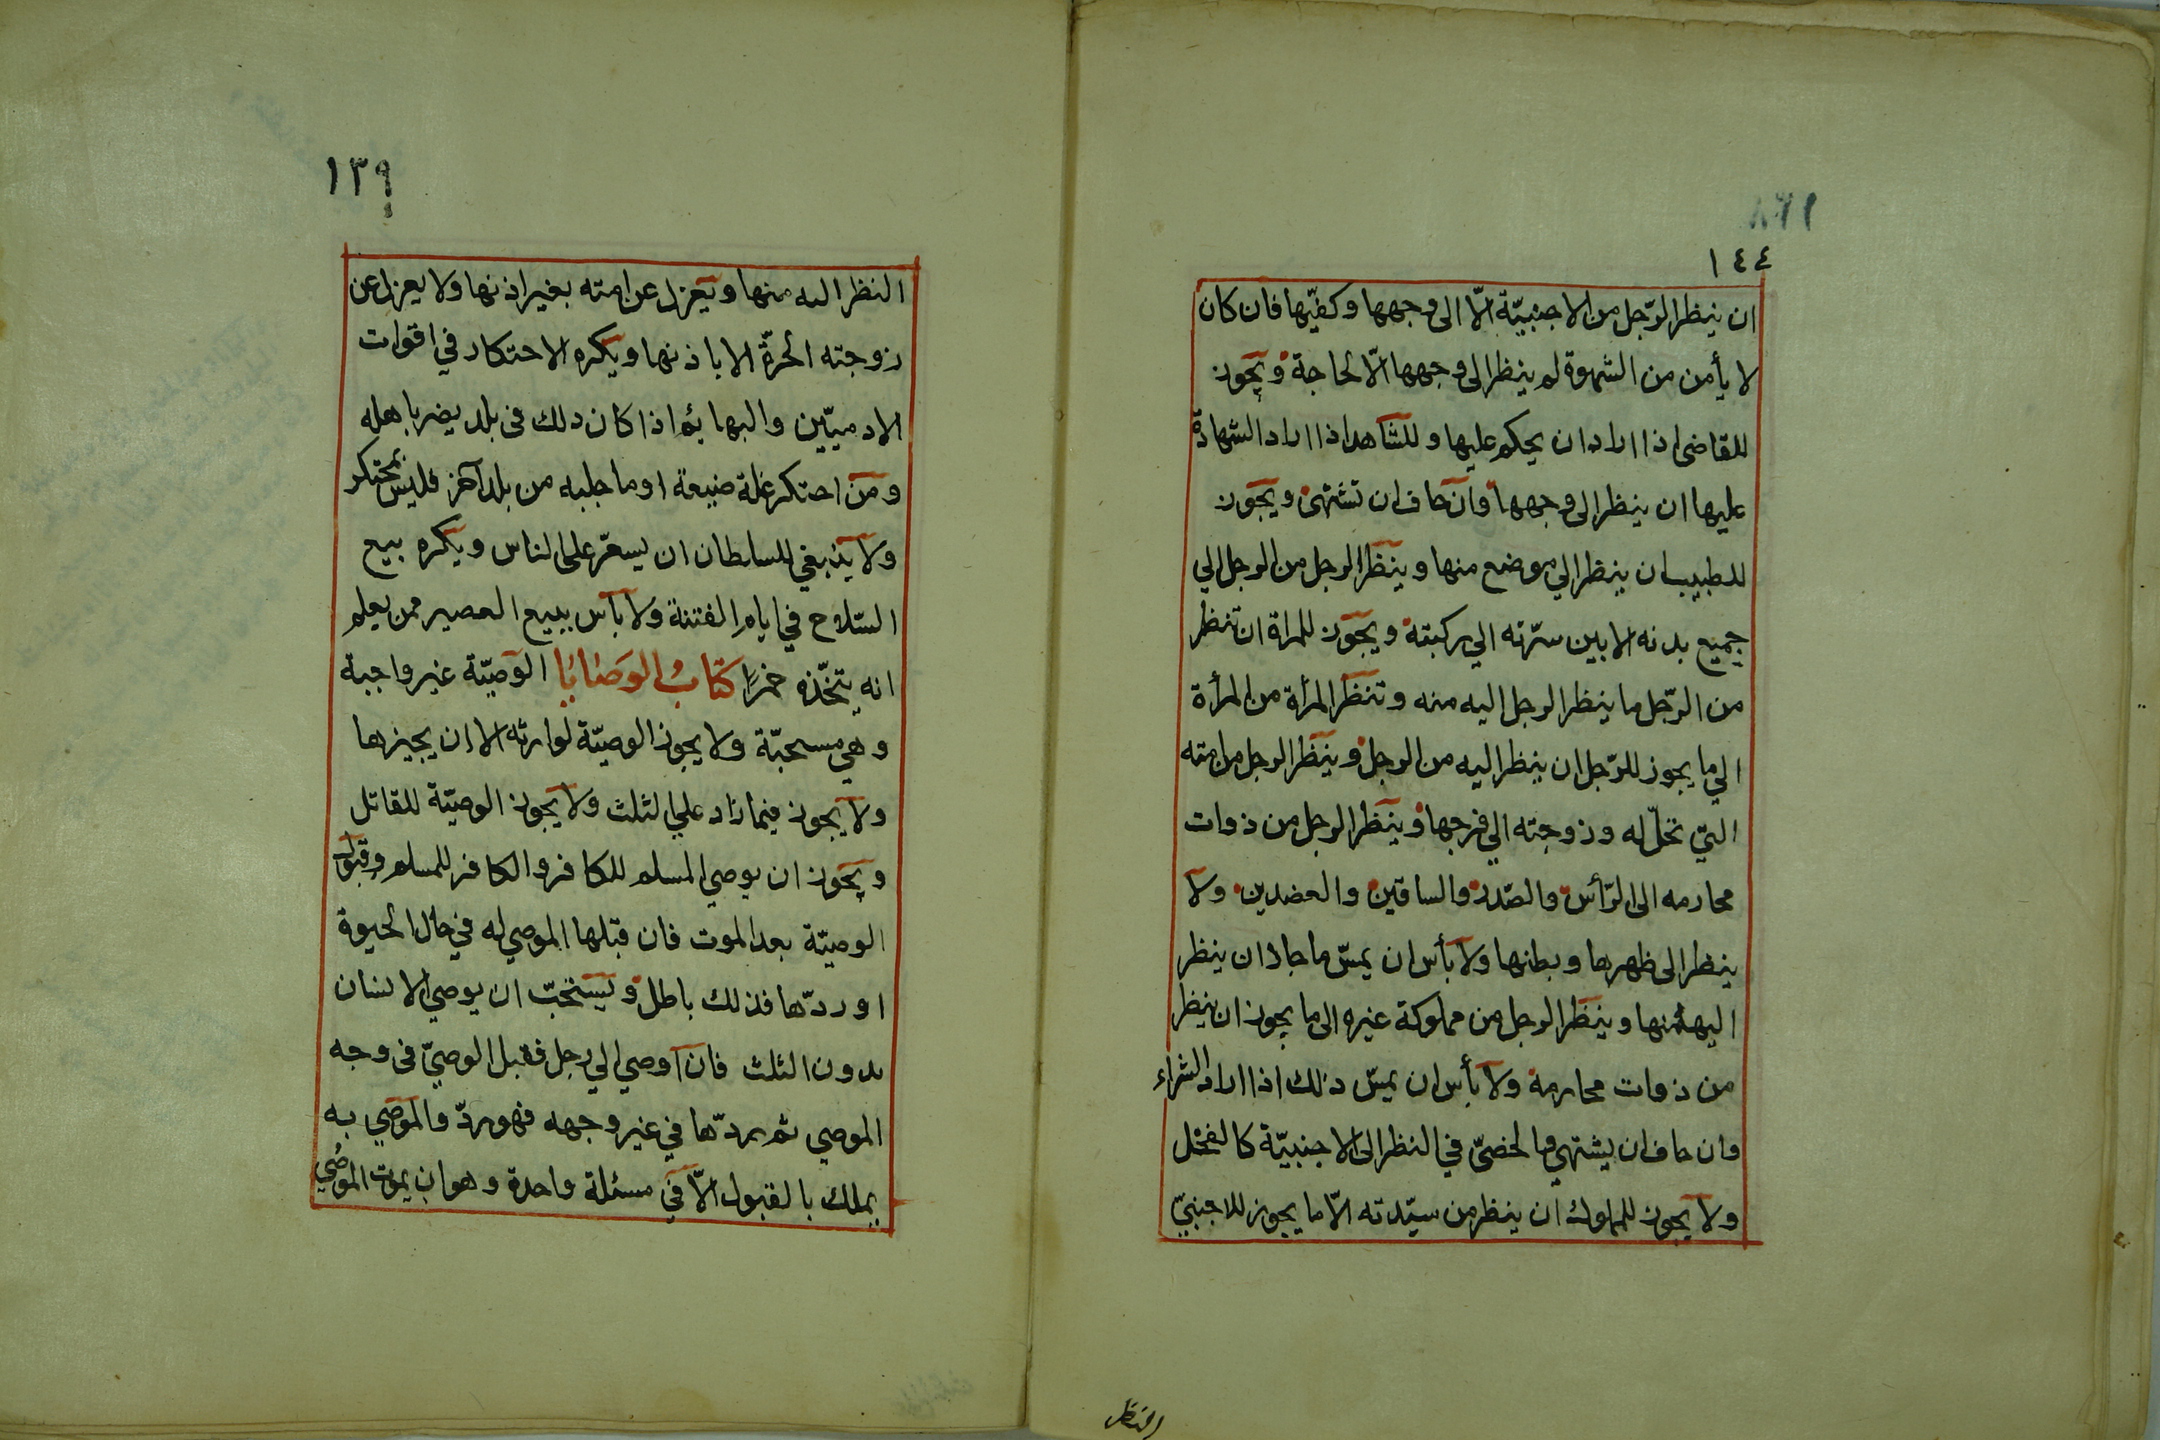 ١٤٤
ان ينظر الرّجل من الاجنبيّة الّا الى وجهها وكفيّها فان كان
لا يأمن من الشهوة لم ينظر الى وجهها الّا لحاجة ويجوز
للقاضى اذا اراد ان يحكم عليها وللشاهد اذا اراد الشهادة
عليها ان ينظر الى وجهها وان خاف ان تشتهى ويجوز
للطبيب ان ينظر الي موضع منها وينظر الرجل من الرجل الي
جميع بدنه الا بين سرّته الي ركبته ويجوز للمراة ان تنظر
من الرّجل ما ينظر الرجل اليه منه وتنظر المرأة من المرأة
الي ما يجوز للرّجل ان ينظر اليه من الرجل وينظر الرجل من امته
التي تحلّ له وزوجته الي فرجها وينظر الرجل من ذوات
محارمه الى الرّأس والصّدر والساقين والعضدين ولا
ينظر الى ظهرها وبطنها ولا بأس ان يمسّ ما جاز ان ينظر
اليه منها وينظر الرجل من مملوكة غيره الى ما يجوز ان ينظر
من ذوات محارمه ولا بأس ان يمسّ ذلك اذا اراد الشراء
وان خاف ان يشتهي والخصىّ في النظر الى الاجنبيّة كالفحل
ولا يجوز للمملوك ان ينظر من سيّدته الّا ما يجوز للاجنبيّ
النظر
١٣٩
النظر اليه منها ويعزل عن امته بغير اذنها ولا يعزل عن
زوجته الحرّة الا باذنها ويكره الاحتكار في اقوات
الادميّين والبهائم اذا كان ذلك فى بلد يضر باهله
ومن احتكر غلة ضيعة او ما جلبه من بلد آخر فليس بمحتكر
ولا ينبغي للسلطان ان يسعّر على الناس ويكره بيع
السّلاح في ايام الفتنة ولا بأس ببيع العصير ممن يعلم
انه يتخّذه خمرًا كتاب الوصايا الوصيّة غير واجبة
وهي مستحبّة ولا يجوز الوصيّة لوارثه الا ان يجيزها
ولا يجوز فيما زاد علي الثلث ولا يجوز الوصيّة للقاتل
ويجوز ان يوصي المسلم للكافر والكافر للمسلم وقبول
الوصيّة بعد الموت فان قبلها الموصي له في حال الحيوة
او ردّها فذلك باطل ويستحبّ ان يوصي الانسان
بدون الثلث فان اوصي الي رجل فقبل الوصيّ فى وجه
الموصي ثم يردّها في غير وجهه فهو ردّ والموصي به
يملك بالقبول الّا في مسئلة واحدة وهو ان يموت الموصي